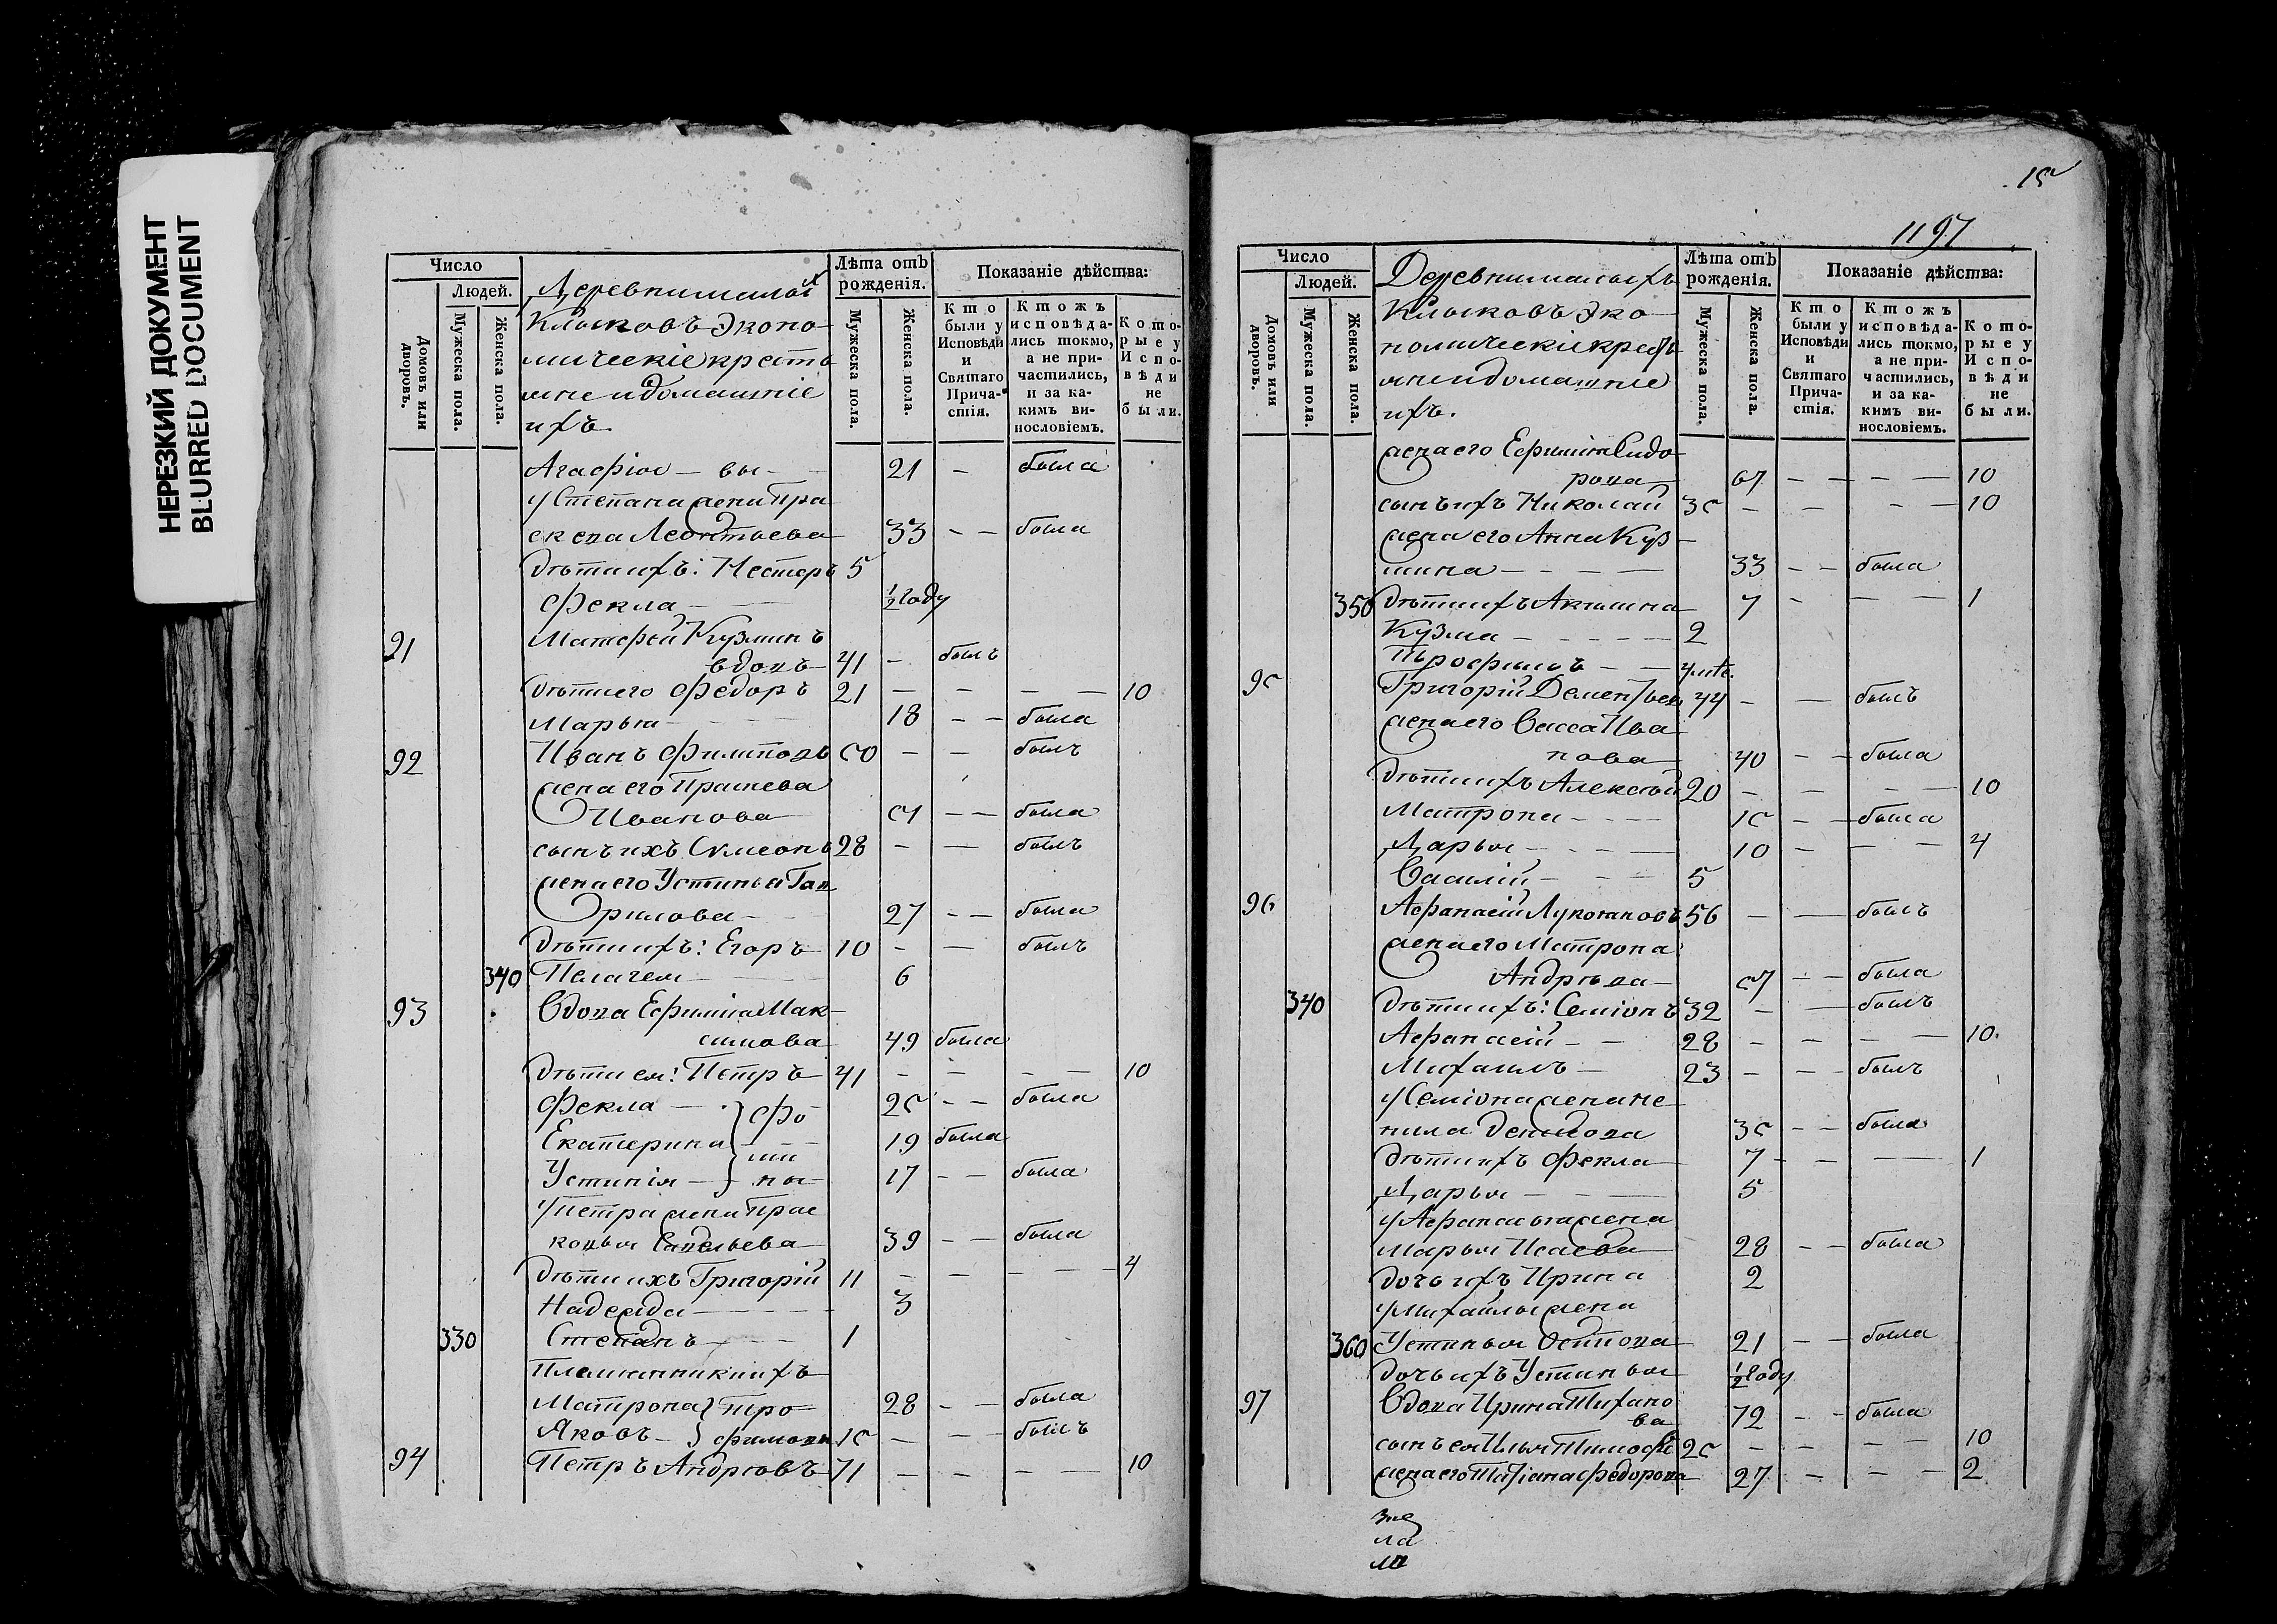 НЕРЕЗКИЙ ДОКУМЕНТ
BLURRED DOCUMENT
Число
Людей.
Домовъ или дворовъ.
Мужеска пола.
Женска пола.
Деревни малых
Клысковъ эконо-
мическіе кресть
яне и домашніе
ихъ.
Лѣта отъ рожденія.
Мужеска пола.
Женска пола.
Показаніе дѣйства:
Кто были у Исповѣди и Святаго Прича-стія.
Ктожъ исповѣда-лись токмо, а не при-частились, и за ка-кимъ ви-нословіемъ.
Кото-рые у Испо-вѣди не были.
Агафія 21 - была
у Степана жена Пра
сковa Леонтьева 33 - - была
дѣти ихъ: Нестеръ 5
Фекла - ½ году
91 Матфей Кузминъ
вдовъ 41 - былъ
дѣти его Федоръ 21 - - - - 10
Марья 18 - - была
92 Иванъ Филиповъ 50 - - былъ
жена его
Иванова 51 - - была
сынъ ихъ Симеонъ 28 - - былъ
жена его Устинья Гав
рилова 27 - - была
дѣти ихъ: Егоръ 10 - - былъ
340 Пелагея 6
93 Вдова Ефимія Мак-
симова 49 была
дѣти ея: Петръ 41 - - - - 10
Фекла - 25 - - была
Екатерина 19 была
Устинія - 17 - - была
у Петра жена Прас
ковья Савельева 39 - - была
дѣти ихъ Григорій 11 - - - - 4
Надежда 3
330 Степанъ 1
племянники ихъ
Матрона } Тро= 28 - - была
Яковъ - } фимовы 15 - - былъ
94 Петръ Андрѣевъ 71 - - - - 10
15
1197
Число
Людей.
Домовъ или дворовъ.
Мужеска пола.
Женска пола.
Деревни малыхъ
Клысковъ эко-
номическіе кресть
яне и домашніе
ихъ.
Лѣта отъ рожденія.
Мужеска пола.
Женска пола.
Показаніе дѣйства:
Кто были у Исповѣди и Святаго Прича-стія.
Ктожъ исповѣда-лись токмо, а не при-частились, и за ка-кимъ ви-нословіемъ.
Кото-рые у Испо-вѣди не были.
жена его Ефимія Сидо
рова 67 - - - - 10
сынъ ихъ Николай 35 - - - - 10
жена его Анна Куз-
мина 33 - - была
350 дѣти ихъ Акилина 7 - - - 1
Кузма 2
95 Григорій Дементьев 44 - - былъ
жена его Васса Ива
нова 40 - - была
дѣти ихъ Алексѣй 20 - - - - 10
Матрона 15 - - была
Дарья 10 - - - 4
Василій 5
96 Афанасій Лукояновъ 56 - - былъ
жена его Матрона
Андрѣева 57 - - была
340 дѣти ихъ: Семіонъ 32 - - былъ
Афанасій 28 - - - - 10.
Михаилъ 23 - - - былъ
у Семіона жена Не-
нила Денисова 35 - - была
дѣти ихъ Фекла 7 - - - - 1
Дарья 5
у Афанасья жена
Марья Исаева 28 - - была
дочь ихъ Ирина 2
у Михайлы жена
360 Устинья Осипова 21 - - была
дочь ихъ Устинья ½ году
97 Вдова Ирина Тихано
ва 72 - - была
сынъ ея Илья Тимофѣ 25 - - - - 10
жена его Татіана Федорова 27 - - - 2